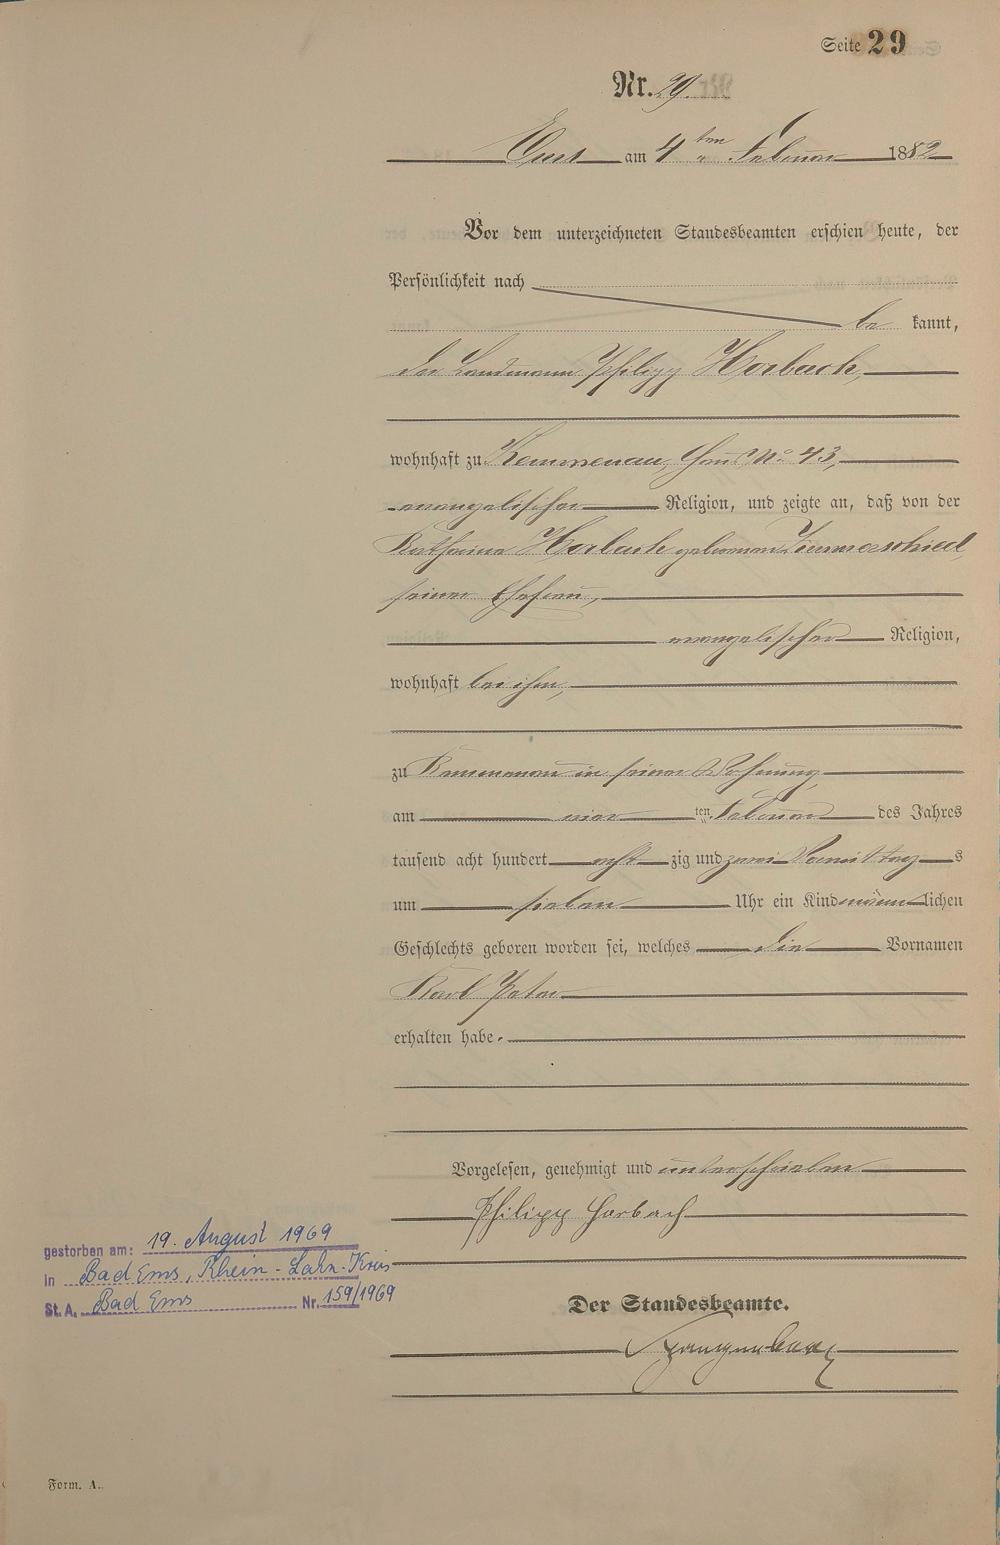 Seite 29
Nr. 29.
Ems am 4 ten Februar 1882
Vor dem unterzeichneten Standesbeamten erschien heute, der
Persönlichkeit nach
be kannt,
der Landmann Philipp Horbach,
wohnhaft zu Kemmenau, Haus No 43,
evangelischer Religion, und zeigte an, daß von der
Katharina Horbach geborenen Zimmerschied,
seiner Ehefrau,
evangelischer Religion,
wohnhaft bei ihm,
zu Kemmenau in seiner Wohnung
am vier ten Februar des Jahres
tausend acht hundert acht zig und zwei Vormittag s
um sieben Uhr ein Kind männ lichen
Geschlechts geboren worden sei, welches die Vornamen
Karl Peter
erhalten habe.
Vorgelesen, genehmigt und unterschrieben
Philipp Horbach
gestorben am: 19. August 1969
in Bad Ems, Rhein-Lahn-Kreis
St. A. Bad Ems Nr. 159/1969
Der Standesbeamte.
Spangenberg
Form. A.